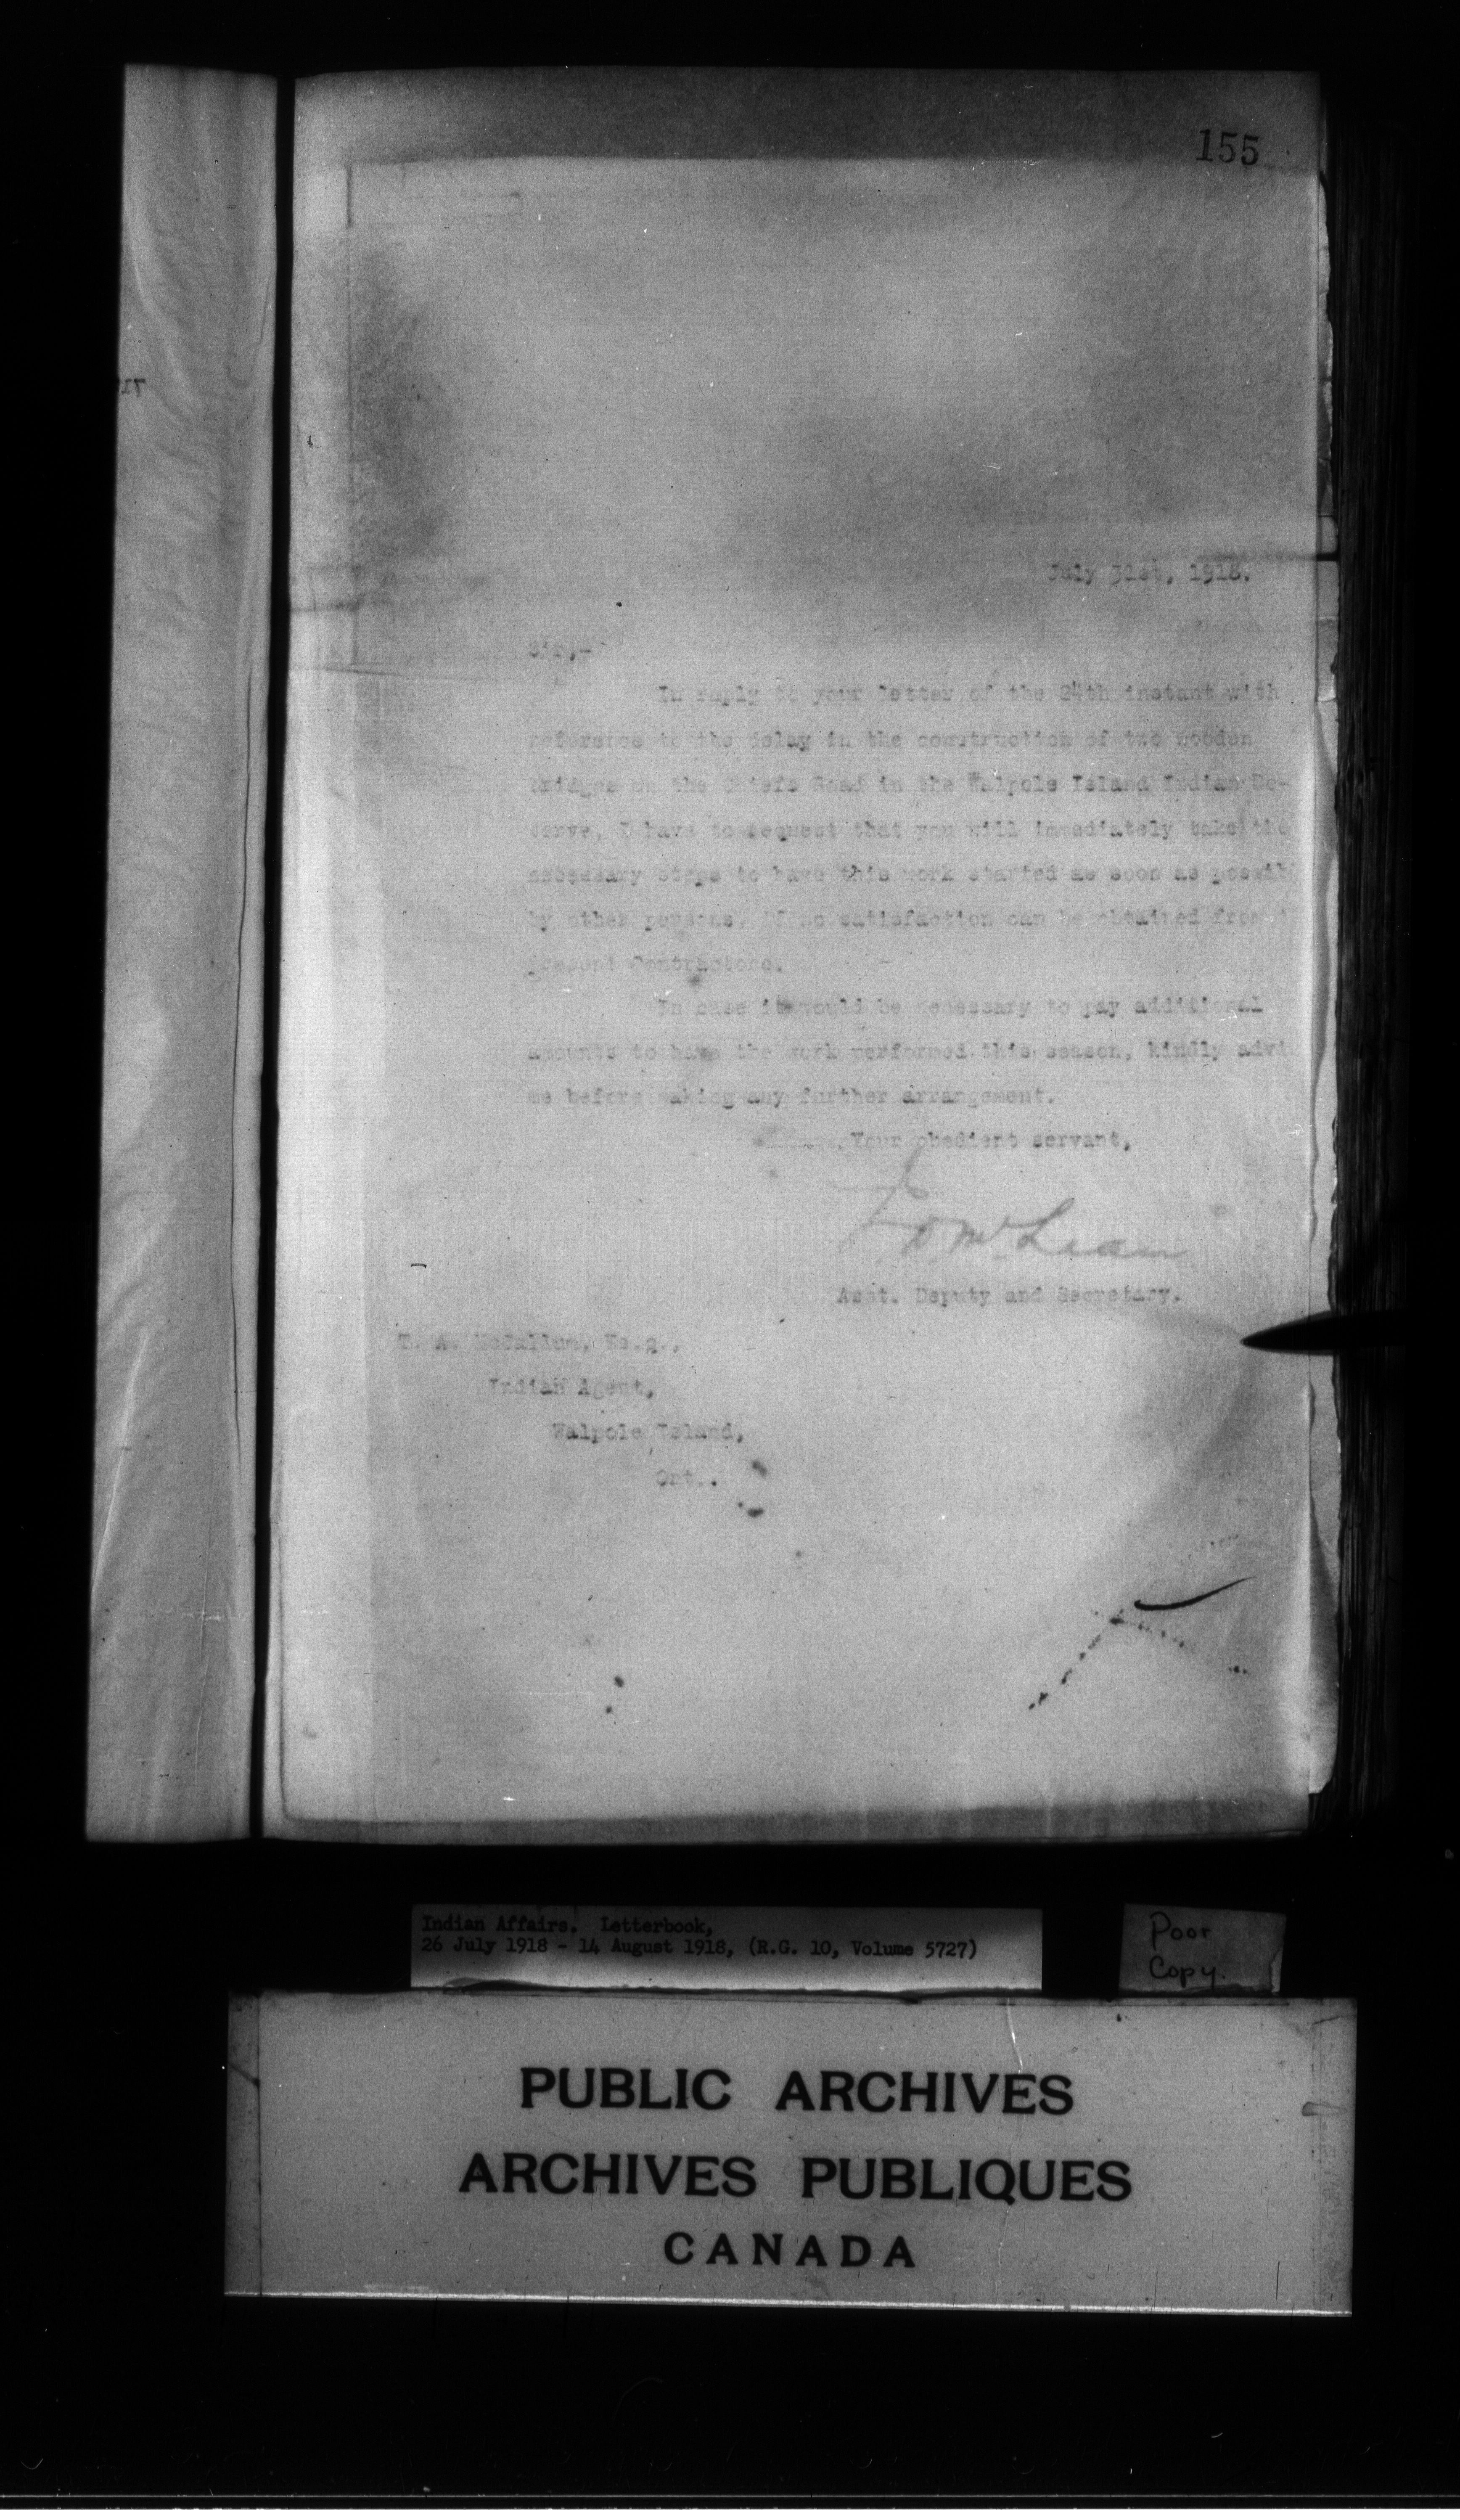 155
July 31st, 1918.
Sir,-
In reply to your letter of the 24th instant with
reference to the delay in the construction of two wooden
bridges on the Chiefs Road in the Walpole Island Indian Re-
serve, I have to request that you will immediately take the
necessary steps to have this work started as soon as possib
by other persons, if no satisfaction can be obtained from
present Contractors.
In case it would be necessary to pay additional
amounts to have the work performed this season, kindly advi
me before making any further arrangement.
Your obedient servant,
McLean
Asst. Deputy and Secretary.
T. A. McCallum, Esq.,
Indian Agent,
Walpole Island,
Ont..
Indian Affairs. Letterbook,
26 July 1918 - 14 August 1918, (R.G. 10, Volume 5727)
Poor
Copy.
PUBLIC ARCHIVES
ARCHIVES PUBLIQUES
CANADA